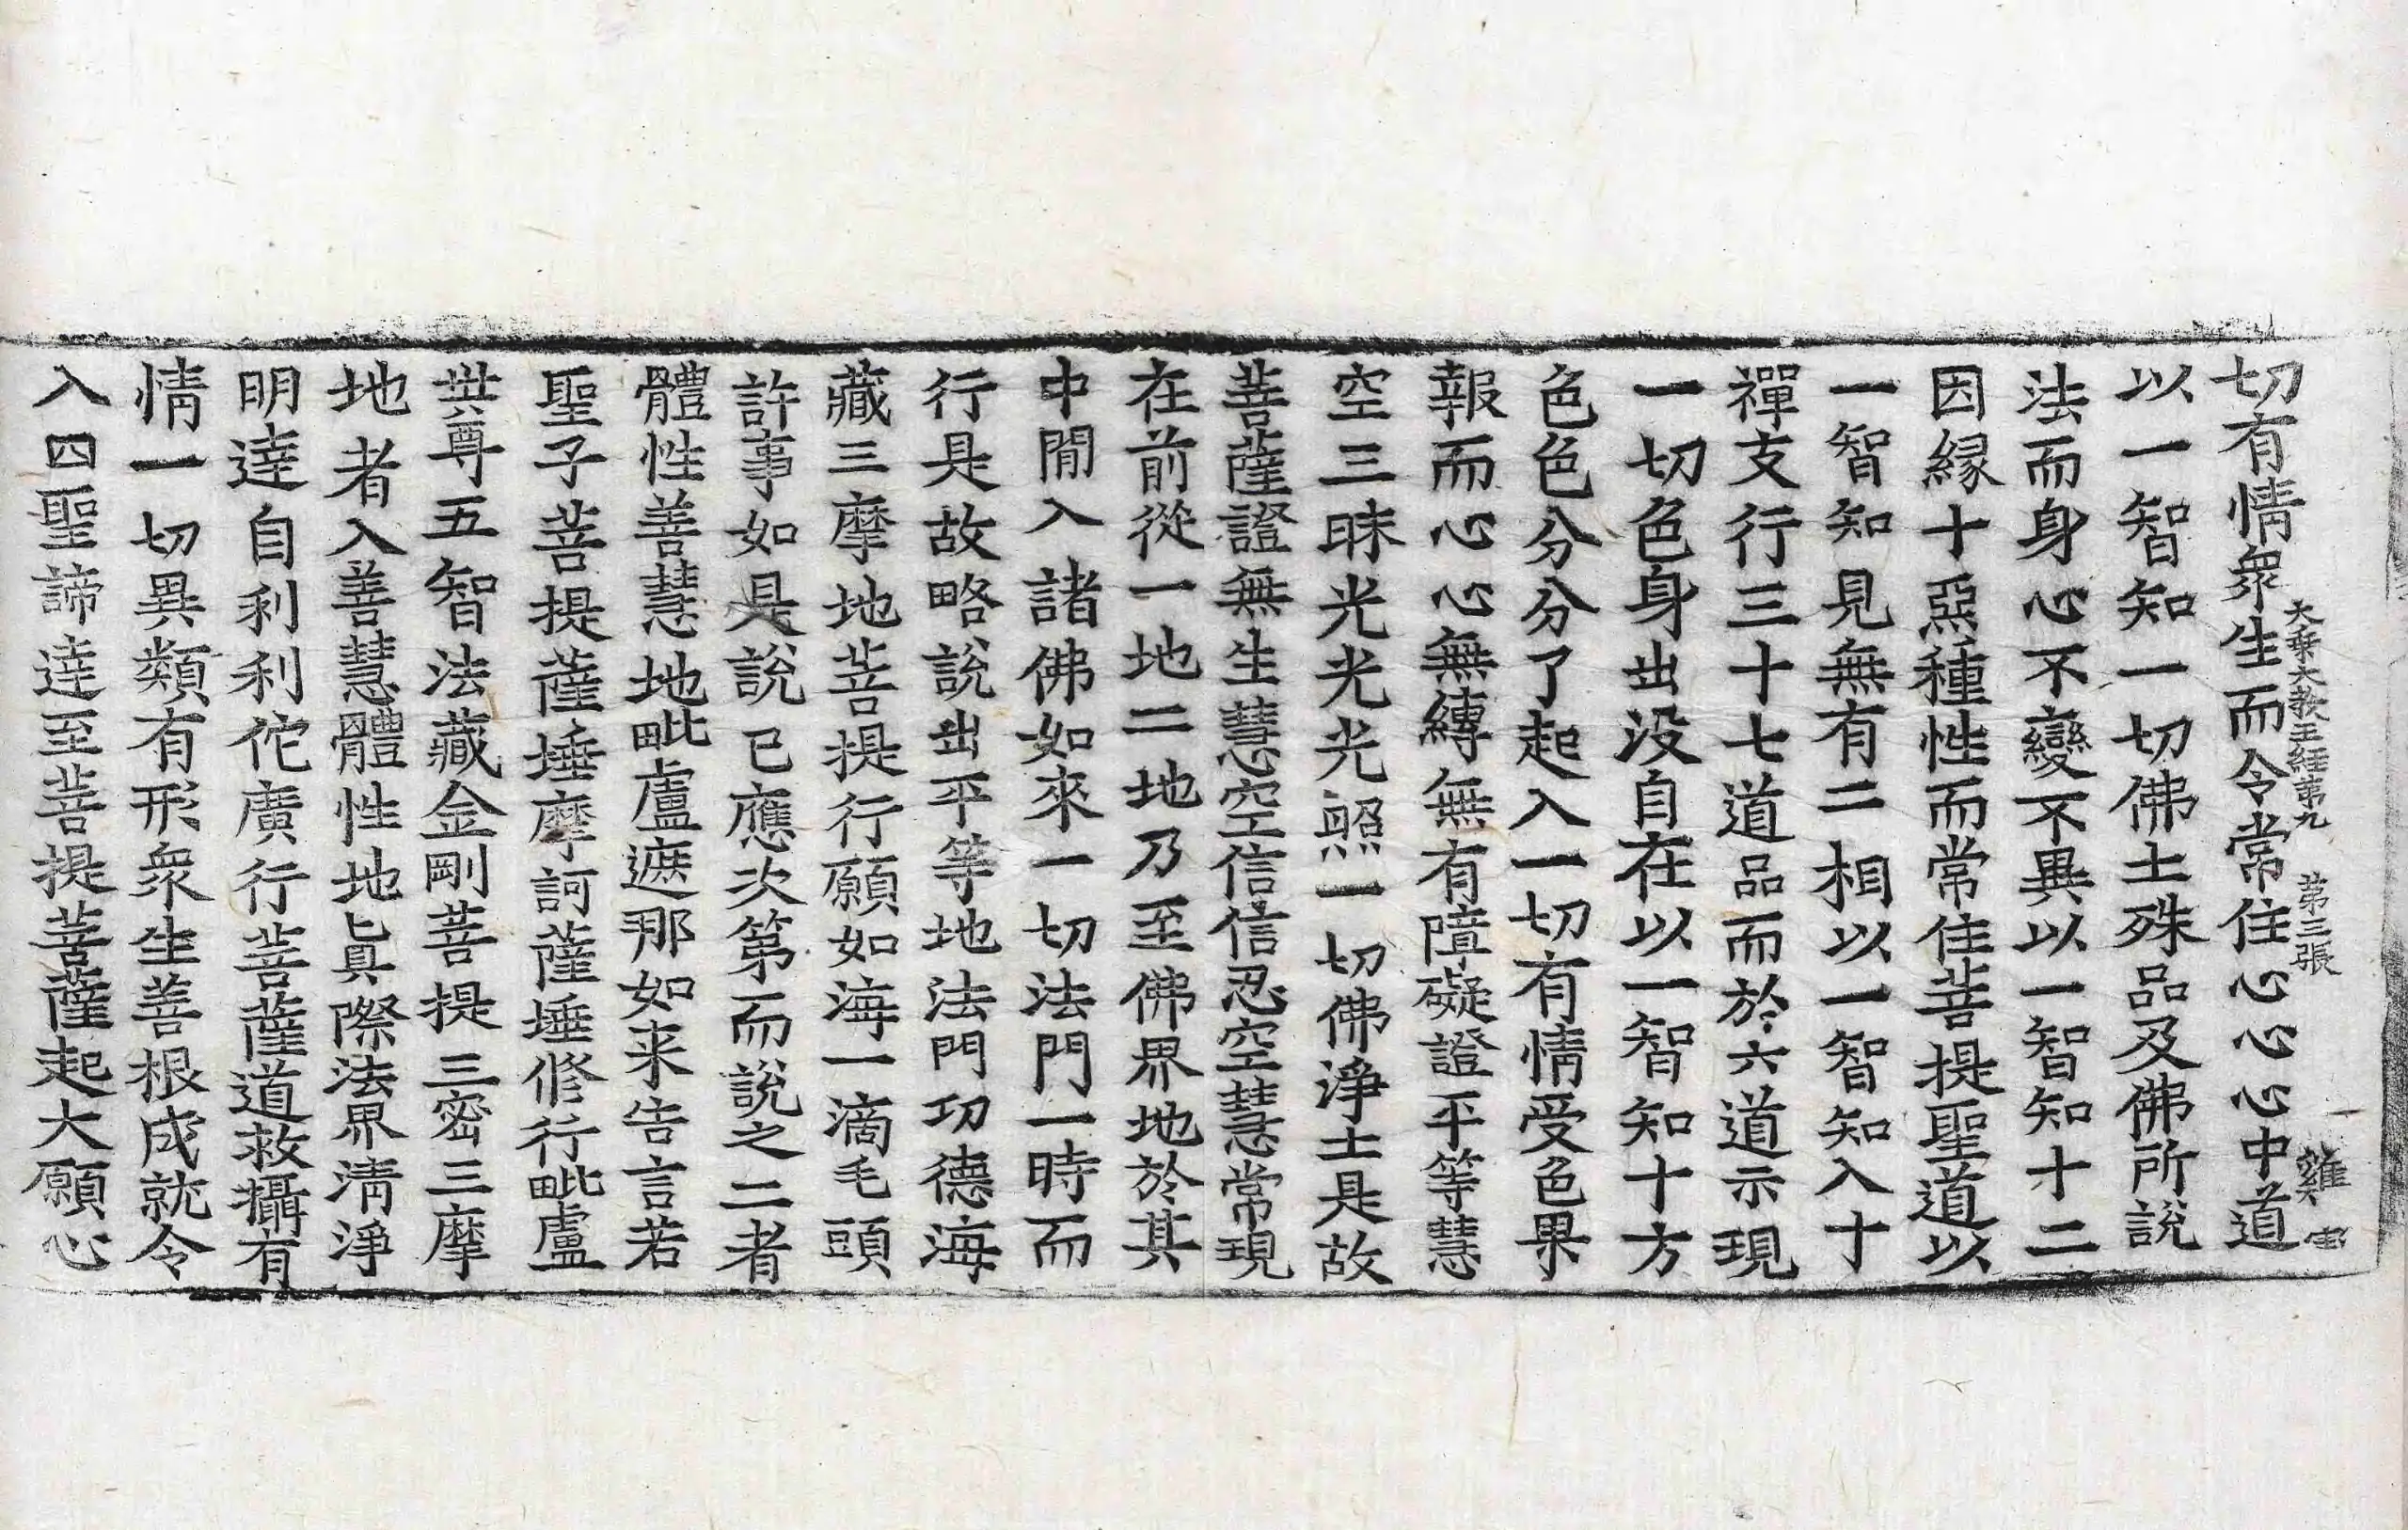 切有情衆生而令常住心心心中道
大乗大教王經第九 第三張 雞
以一智知一切佛土殊品及佛所說
法而身心不變不異以一智知十二
因縁十惡種性而常住菩提聖道以
一智知見無有二相以一智知入十
禪支行三十七道品而於六道示現
一切色身出没自在以一智知十方
色色分分了起入一切有情受色果
報而心心無縛無有障礙證平等慧
空三昧光光光照一切佛淨土是故
菩薩證無生慧空信信忍空慧常現
在前從一地二地乃至佛界地於其
中閒入諸佛如來一切法門一時而
行是故略說出平等地法門功德海
藏三摩地菩提行願如海一滴毛頭
許事如是說已應次第而說之二者
體性善慧地毗盧遮那如来告言若
聖子菩提薩埵摩訶薩埵修行毗盧
世尊五智法藏金剛菩提三密三摩
地者入善慧體性地眞際法界清淨
明達自利利佗廣行菩薩道救攝有
情一切異類有形衆生善根成就令
入四聖諦達至菩提菩薩起大願心